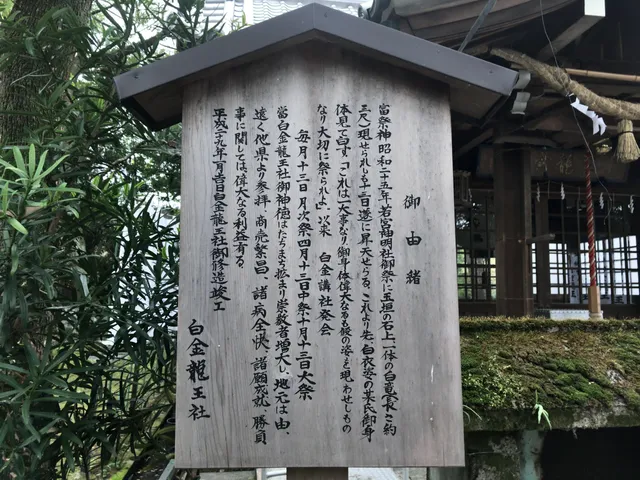 御由緒
当祭神昭和二十五年若宮神明社御祭に玉垣の石上一体の白竜(長さ約
三尺)現せられしも十二日遂に昇天せらる、これより先、白衣姿の某氏御身
体見て曰す「これは一大事なり御身体偉大なるも仮の姿を現わせしもの
なり大切に祭られよ」以来 白金講社発会
毎月十三日月次祭四月十三日中祭十月十三日大祭
當白金龍王社御神徳はたちまち拡まり崇敬者増大し、地元は由、
遠く他県より参拝、商売繁昌、諸病全快、諸願成就、勝負
事に関しては、偉大なる利益有る、
平成二十九年一月吉日白金龍王社御修造竣工
白金龍王社